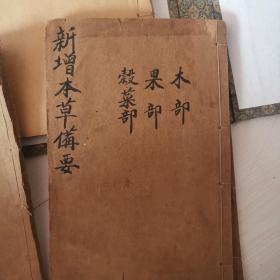 新增本草備要
木部
果部
穀菜部